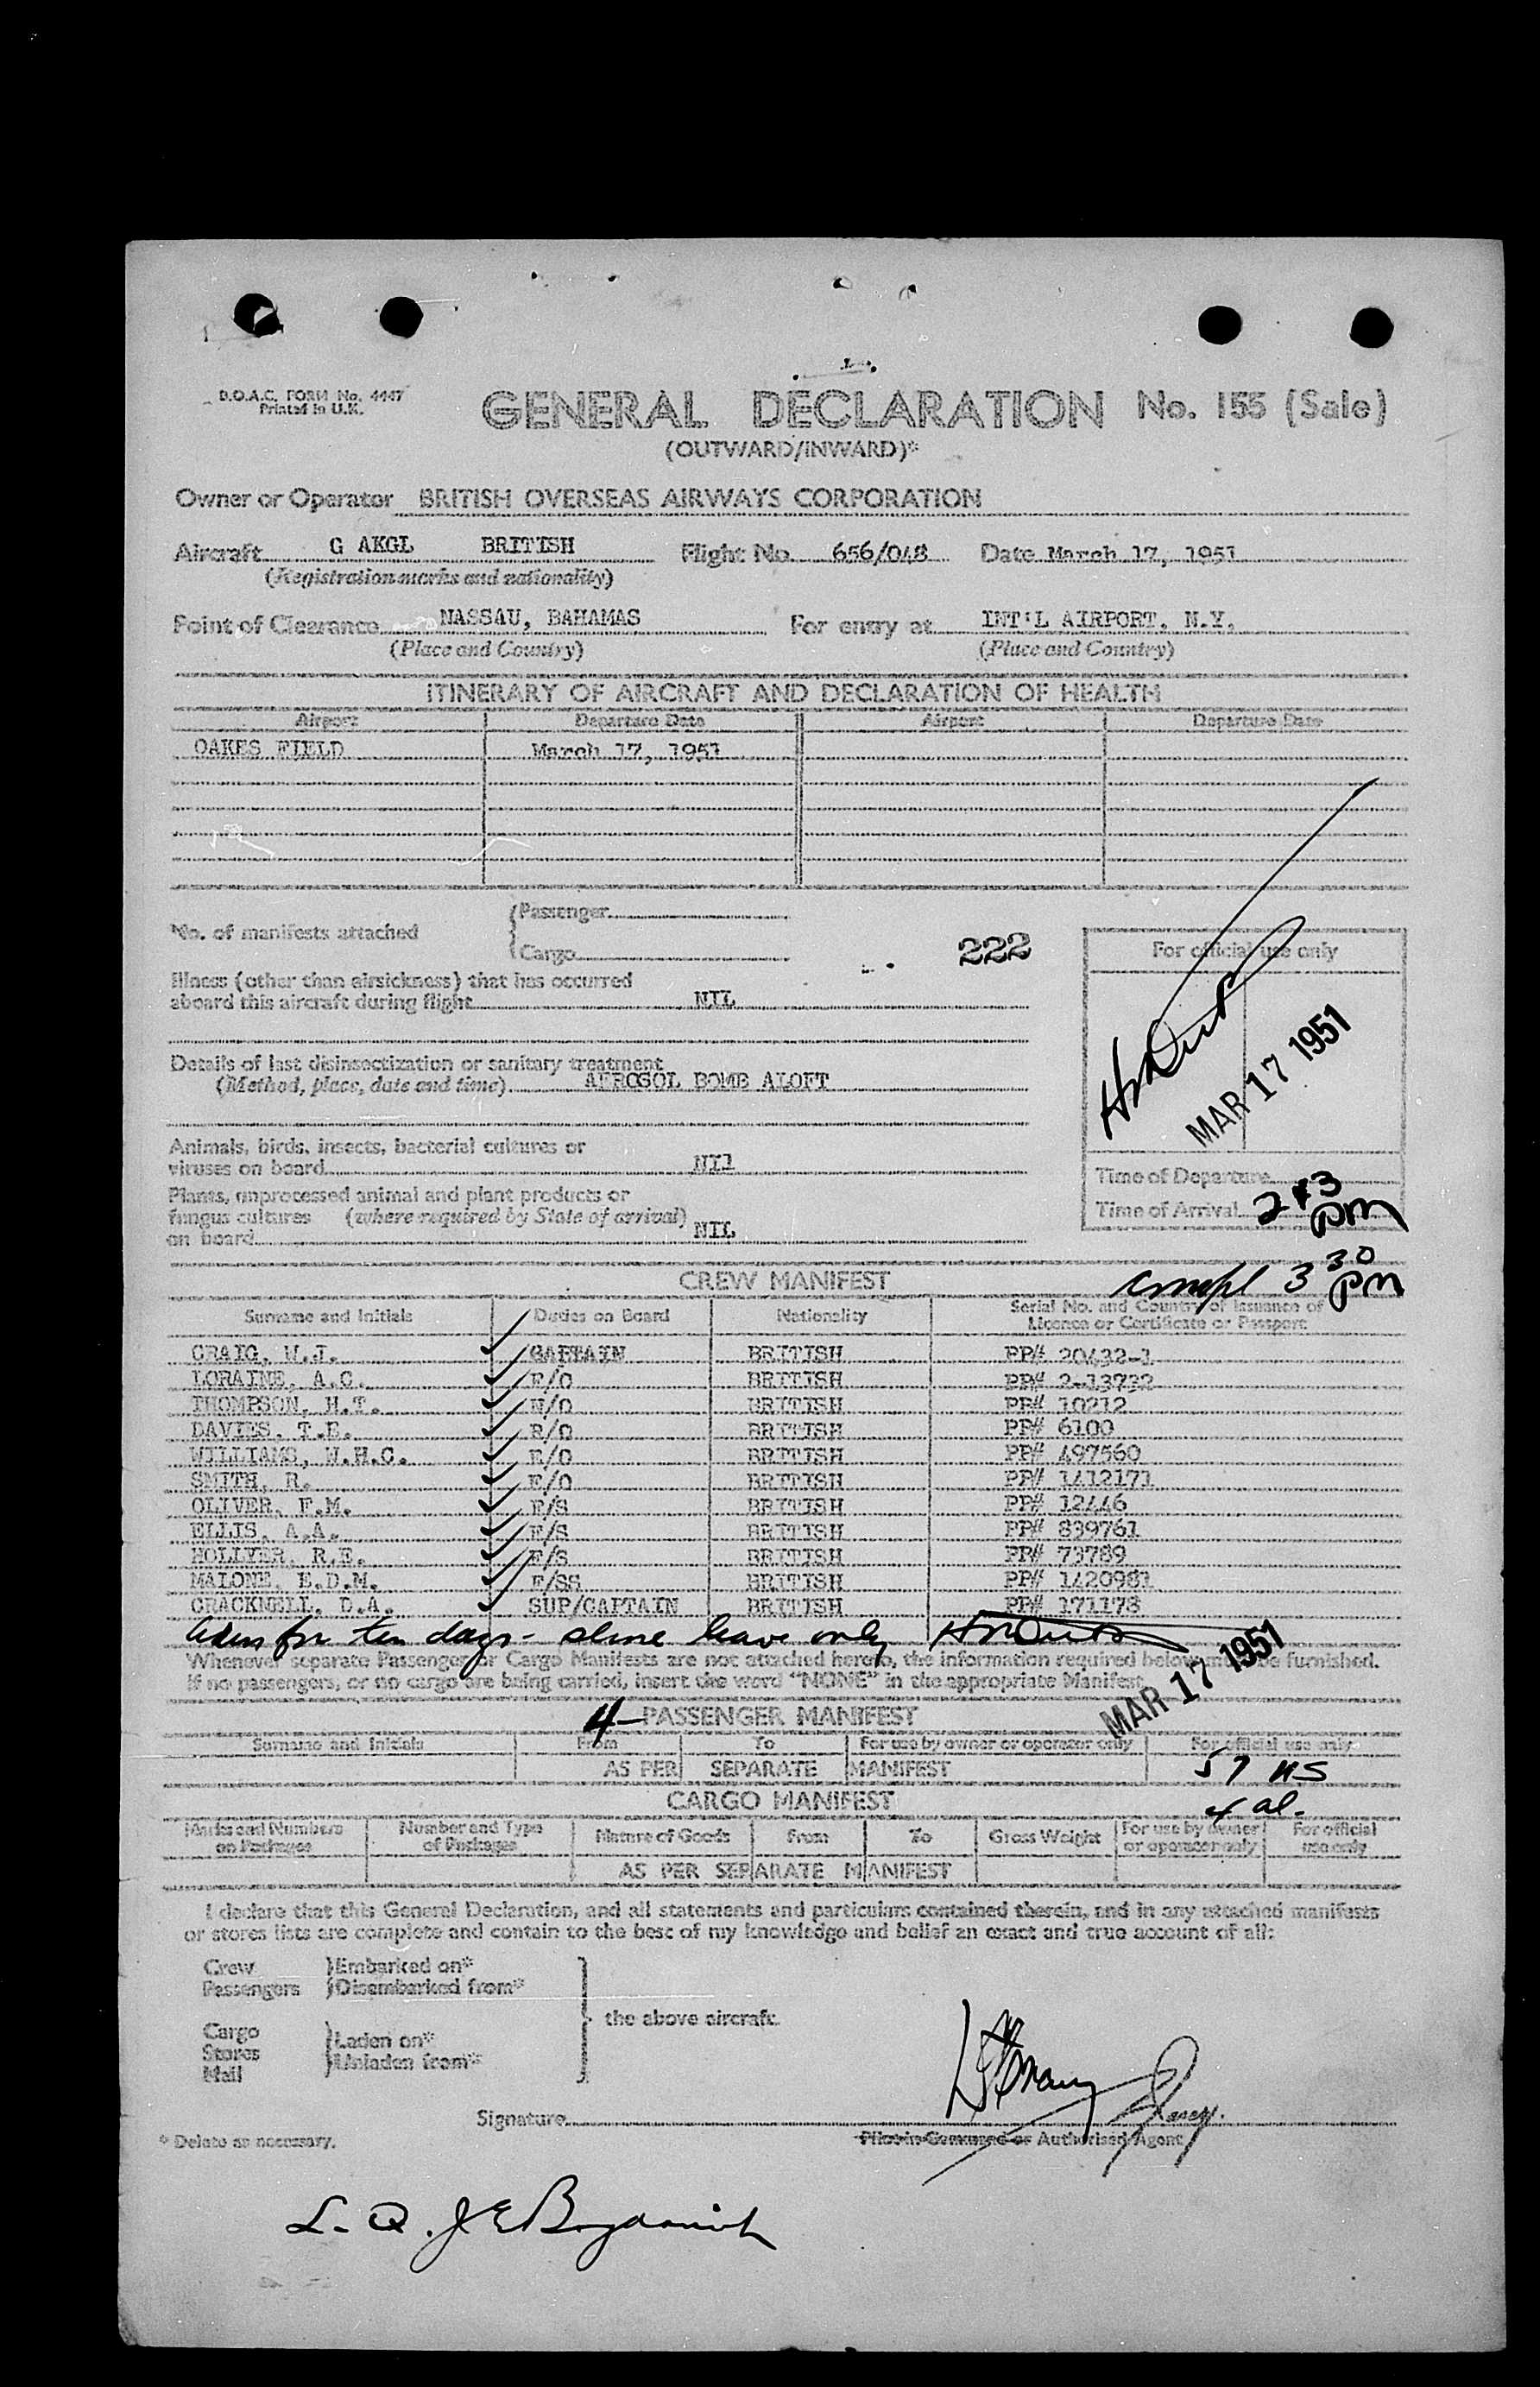 B.O.A.C. FORM No. 4447
Printed in U.K.
GENERAL DECLARATION No. 155 (Sale)
(OUTWARD/INWARD)*
Owner or Operator BRITISH OVERSEAS AIRWAYS CORPORATION
Aircraft G AKGL BRITISH Flight No. 656/048 Date March 17, 1951
(Registration marks and nationality)
Point of Clearance NASSAU, BAHAMAS For entry at INT'L AIRPORT. N.Y.
(Place and Country) (Place and Country)
ITINERARY OF AIRCRAFT AND DECLARATION OF HEALTH
Airport Departure Date Airport Departure Date
OAKES FIELD March 17, 1951
No. of manifests attached
Passenger
Cargo
222
For official use only
Illness (other than airsickness) that has occurred
aboard this aircraft during flight NIL
MAR 17 1951
Details of last disinsectization or sanitary treatment
(Method, place, date and time) AEROSOL BOMB ALOFT
Animals, birds, insects, bacterial cultures or
viruses on board NIL
Time of Departure
Plants, unprocessed animal and plant products or
fungus cultures (where required by State of arrival)
on board NIL
Time of Arrival 2 43 pm
CREW MANIFEST
compl 3 30 pm
Surname and Initials Duties on Board Nationality Serial No. and Country of Issuance of
Licence or Certificate or Passport
CRAIG, W.J. CAPTAIN BRITISH PP# 20432-1
LORAINE, A.C. F/O BRITISH PP# 2-13732
THOMPSON, H.T. N/O BRITISH PP# 10212
DAVIES, T.E. R/O BRITISH PP# 6100
WILLIAMS, W.H.C. E/O BRITISH PP# 497560
SMITH, R. E/O BRITISH PP# 1412171
OLIVER, F.M. F/S BRITISH PP# 12446
ELLIS, A.A. F/S BRITISH PP# 839761
HOLLYER, R.E. F/S BRITISH PP# 73789
MALONE, E.D.M. F/SS BRITISH PP# 1420981
CRACKNELL, D.A. SUP/CAPTAIN BRITISH PP# 171178
for ten days - shore leave only
Whenever separate Passenger or Cargo Manifests are not attached hereto, the information required below must be furnished.
If no passengers, or no cargo are being carried, insert the word "NONE" in the appropriate Manifest
MAR 17 1951
4 - PASSENGER MANIFEST
Surname and Initials From To For use by owner or operator only For official use only
AS PER SEPARATE MANIFEST
57 us
4 al.
CARGO MANIFEST
Marks and Numbers on Packages Number and Type of Packages Nature of Goods From To Gross Weight For use by owner or operator only For official use only
AS PER SEPARATE MANIFEST
I declare that this General Declaration, and all statements and particulars contained therein, and in any attached manifests
or stores lists are complete and contain to the best of my knowledge and belief an exact and true account of all:
Crew Embarked on*
Passengers Disembarked from*
the above aircraft.
Cargo Laden on*
Stores Unladen from*
Mail
Signature
Pilot in Command or Authorised Agent
* Delete as necessary.